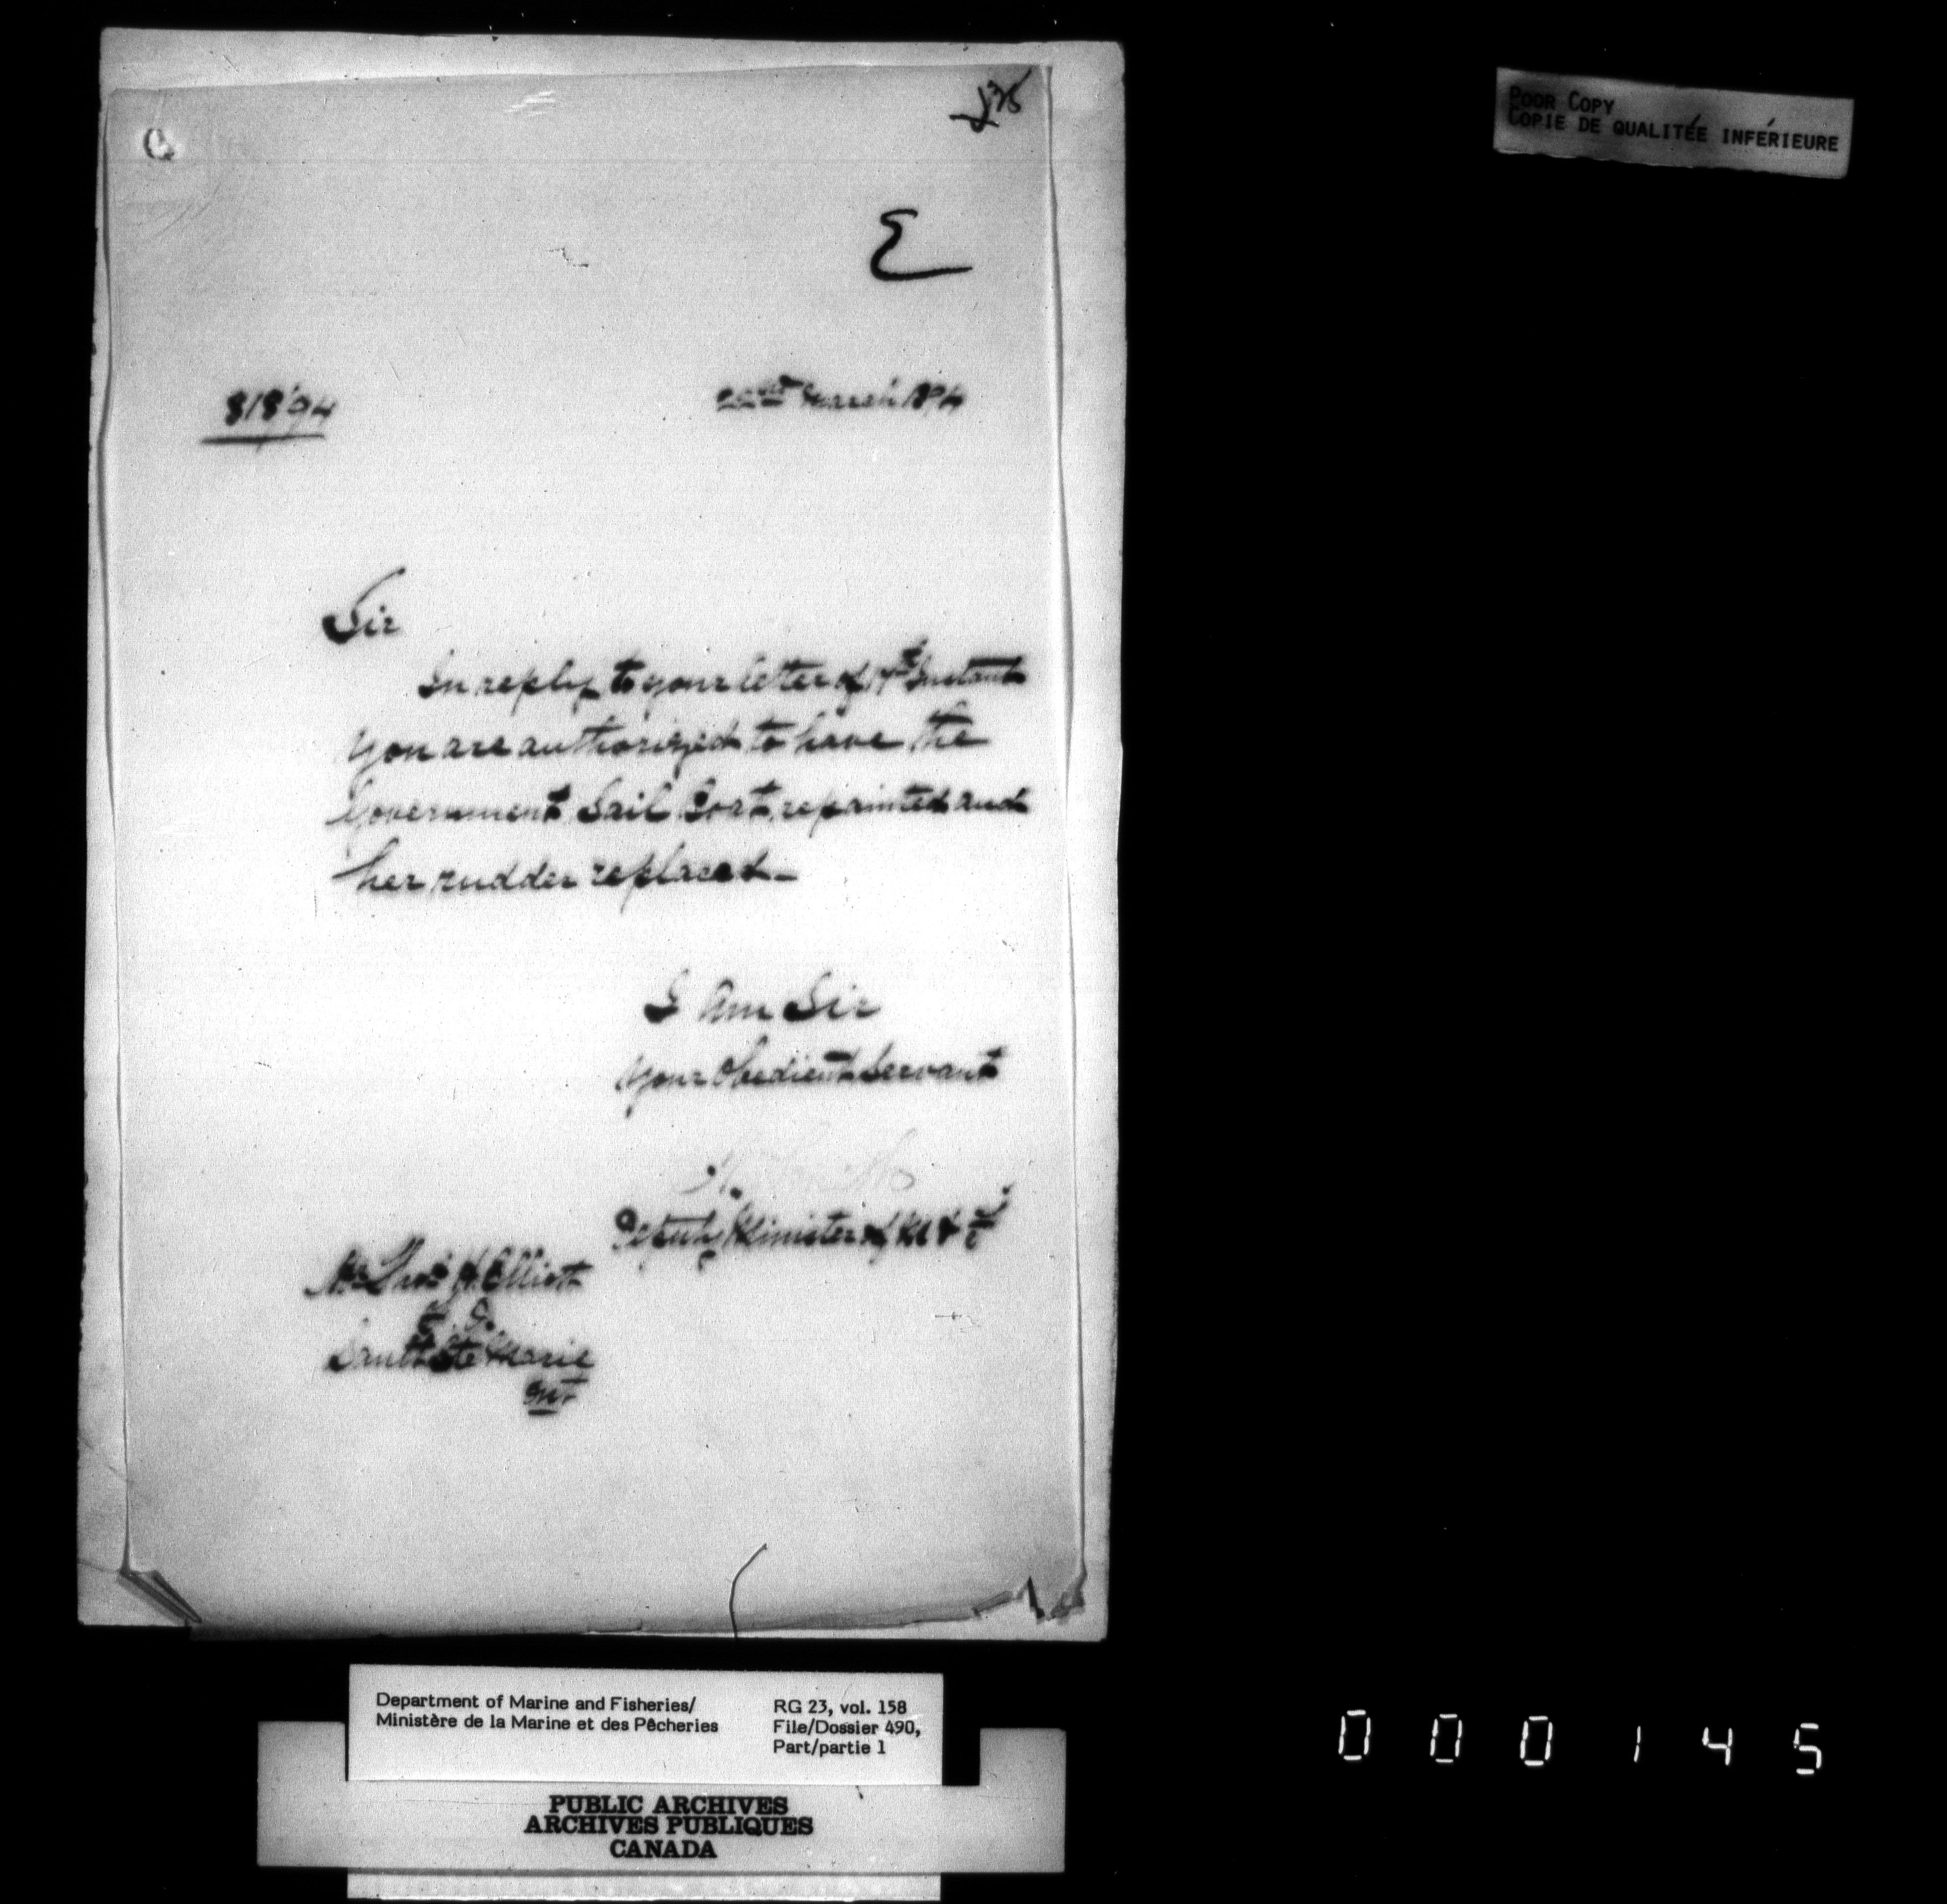 POOR COPY
COPIE DE QUALITÉE INFÉRIEURE
E
818'94
22nd March 1894
Sir
In reply to your letter of 17th Instant
you are authorized to have the
Government Sail Boat repainted and
her rudder replaced_
I am Sir
Your Obedient Servant
Deputy Minister of M & F
Mr Thos H. Elliott
Sault Ste Marie
Ont
Department of Marine and Fisheries/
Ministère de la Marine et des Pêcheries
RG 23, vol. 158
File/Dossier 490,
Part/partie 1
PUBLIC ARCHIVES
ARCHIVES PUBLIQUES
CANADA
000145